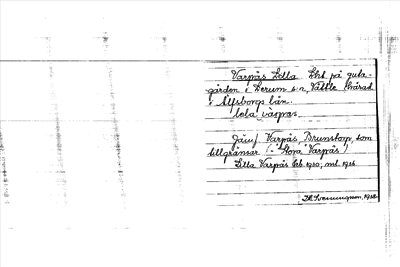 Varpås Lilla. Lht på gula-
gården i Lerum s-n, Vättle härad
i Älfsborgs län.
lɩla varpas.
Jämf. Varpås Brunstorp, som
tillgränsar (= "Stora Varpås")
Lilla Varpås bb. 1910; mtl 1916